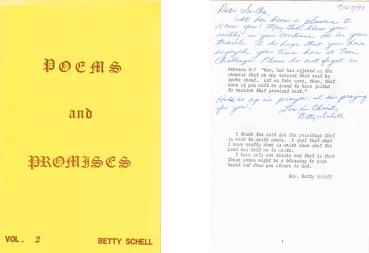 POEMS
and
PROMISES
VOL. 2
BETTY SCHELL
9/27/97
Dear
It has been a pleasure to
know you! May God bless you
richly as you continue in
travels. I do hope that you have
enjoyed your time here at Teen
Challenge! Please do not forget us
Hebrews 4:1 "Now, God has offered us the
promise that we may
spoke about. Let us take care, then, that
none of you will be found to have failed
to receive that promised rest."
us up in prayer. I am praying
for you! Love in Christ,
Betty Schell
I thank the Lord for the privilege that
is mine to write poems. I feel that what
I have really done is write down what the
Lord has told me to write.
I have only one desire and that is that
these poems might be a blessing to your
heart and draw you closer to God.
Rev. Betty Schell
1